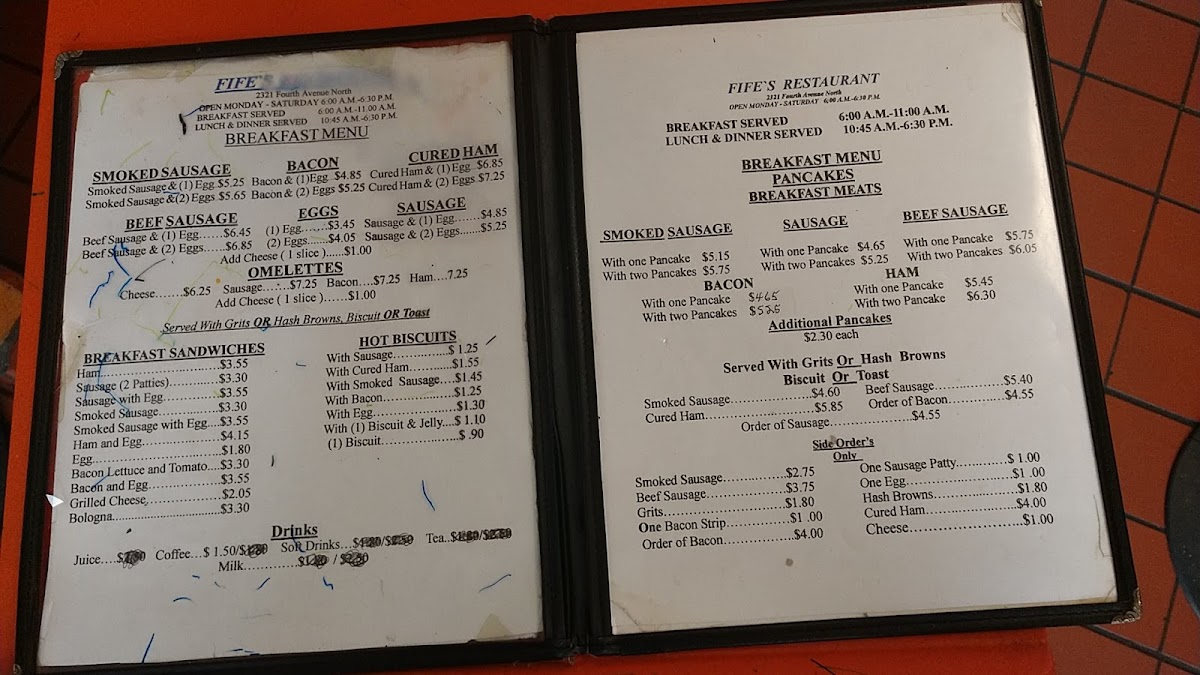 FIFE'S
2321 Fourth Avenue North
OPEN MONDAY - SATURDAY 6:00 A.M.-6:30 P.M.
BREAKFAST SERVED 6:00 A.M.-11.00 A.M.
LUNCH & DINNER SERVED 10:45 A.M.-6:30 P.M.
BREAKFAST MENU
SMOKED SAUSAGE BACON CURED HAM
Smoked Sausage & (1) Egg $5.25 Bacon & (1)Egg $4.85 Cured Ham & (1) Egg $6.85
Smoked Sausage &(2) Eggs $5.65 Bacon & (2) Eggs $5.25 Cured Ham & (2) Eggs $7.25
BEEF SAUSAGE EGGS SAUSAGE
Beef Sausage & (1) Egg......$6.45 (1) Egg.......$3.45 Sausage & (1) Egg.......$4.85
Beef Sausage & (2) Eggs......$6.85 (2) Eggs......$4.05 Sausage & (2) Eggs......$5.25
Add Cheese ( 1 slice )......$1.00
OMELETTES
Cheese.......$6.25 Sausage.......$7.25 Bacon....$7.25 Ham....7.25
Add Cheese ( 1 slice )......$1.00
Served With Grits OR Hash Browns, Biscuit OR Toast
BREAKFAST SANDWICHES
Ham..............................$3.55
Sausage (2 Patties)............$3.30
Sausage with Egg...............$3.55
Smoked Sausage................$3.30
Smoked Sausage with Egg....$3.55
Ham and Egg....................$4.15
Egg................................$1.80
Bacon Lettuce and Tomato....$3.30
Bacon and Egg..................$3.55
Grilled Cheese...................$2.05
Bologna...........................$3.30
HOT BISCUITS
With Sausage...............$ 1.25
With Cured Ham...........$1.55
With Smoked Sausage....$1.45
With Bacon..................$1.25
With Egg.....................$1.30
With (1) Biscuit & Jelly....$ 1.10
(1) Biscuit....................$ .90
Drinks
Juice.... Coffee...$ 1.50/ Soft Drinks... Tea..
Milk............
FIFE'S RESTAURANT
2321 Fourth Avenue North
OPEN MONDAY - SATURDAY 6:00 A.M.-6:30 P.M.
BREAKFAST SERVED 6:00 A.M.-11:00 A.M.
LUNCH & DINNER SERVED 10:45 A.M.-6:30 P.M.
BREAKFAST MENU
PANCAKES
BREAKFAST MEATS
SMOKED SAUSAGE SAUSAGE BEEF SAUSAGE
With one Pancake $5.15 With one Pancake $4.65 With one Pancake $5.75
With two Pancakes $5.75 With two Pancakes $5.25 With two Pancakes $6.05
BACON HAM
With one Pancake $465 With one Pancake $5.45
With two Pancakes $525 With two Pancake $6.30
Additional Pancakes
$2.30 each
Served With Grits Or Hash Browns
Biscuit Or Toast
Smoked Sausage....................$4.60 Beef Sausage.................$5.40
Cured Ham...........................$5.85 Order of Bacon...............$4.55
Order of Sausage....................$4.55
Side Order's
Only
Smoked Sausage................$2.75
Beef Sausage.....................$3.75
Grits...............................$1.80
One Bacon Strip................$1 .00
Order of Bacon..................$4.00
One Sausage Patty.............$ 1.00
One Egg..........................$1 .00
Hash Browns.....................$1.80
Cured Ham.......................$4.00
Cheese............................$1.00